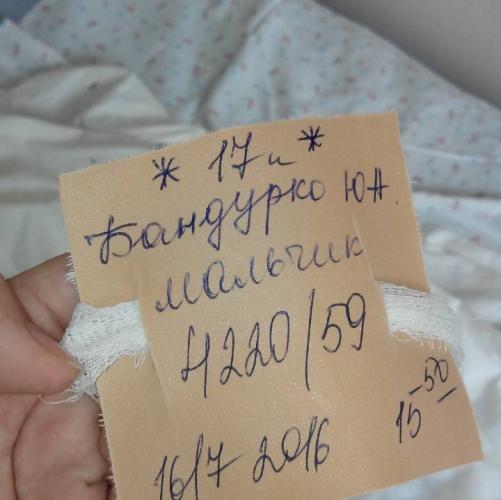 * 17и *
Бандурко Ю.А.
мальчик
4220/59
16/7 2016 15-50